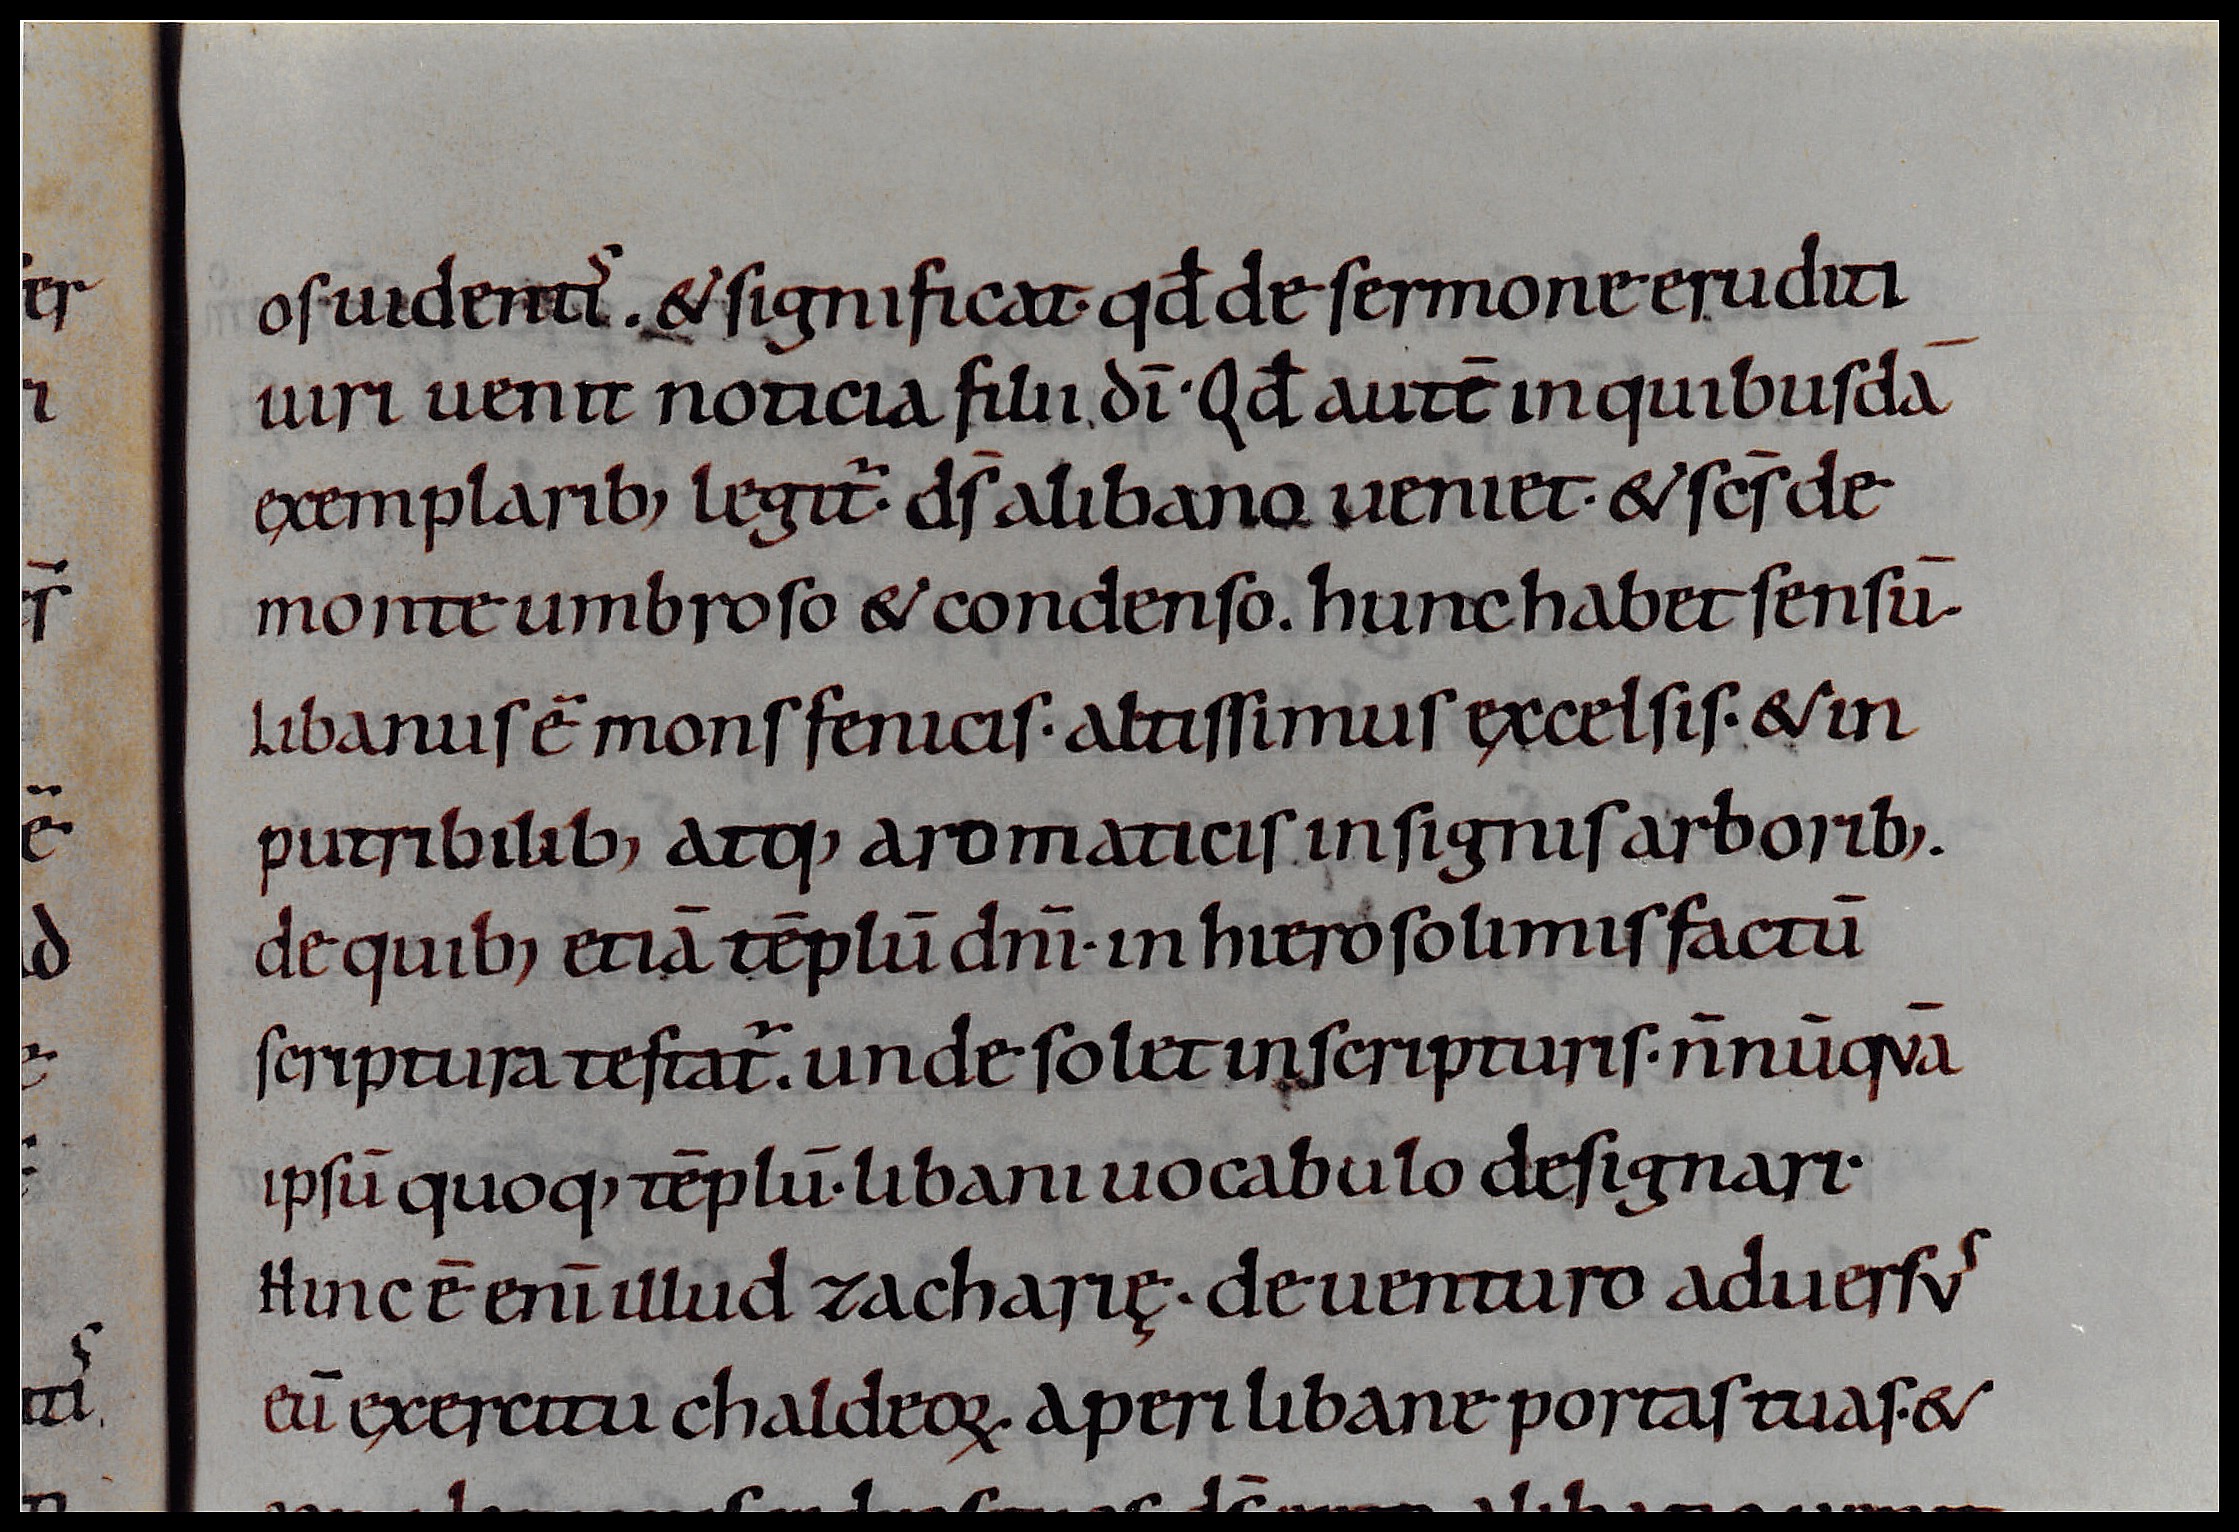 os uidenti^s. & significat· qđ de sermone eruditi
uiri uenit noticia filii dī· Qđ autē in quibusdā
exemplarib, legit^r· dš a libano ueniet· & scs̄ de
monte umbroso & condenso. hunc habet sensū·
Libanus ē mons fenicis· altissimus excelsis· & in
putribilib, atq, aromaticis insignis arborib,.
de quib, etiā tēplū dnī· in hierosolimis factū
scriptura testat^r. unde solet in scripturis· n̄nūqvā
ipsū quoq, tēplū· libani uocabulo designari·
Hinc ē enī illud zacharię· de uenturo aduersv^s
eū exercitu chaldeoꝝ· aperi libane portas tuas· &